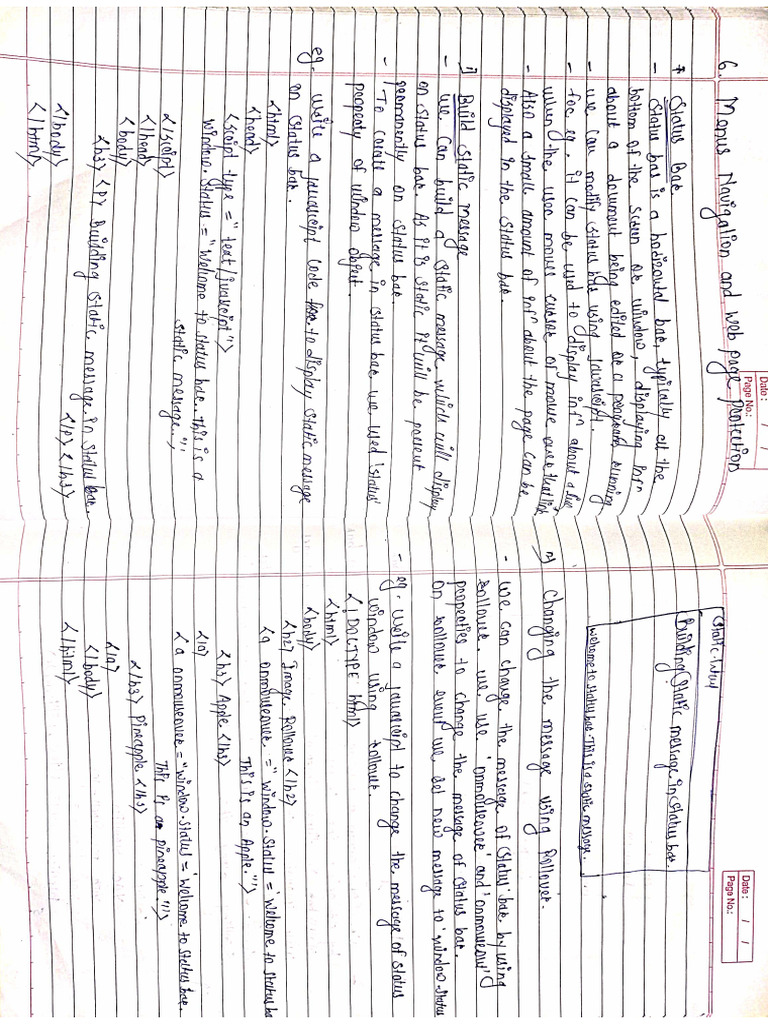 Date : / /
Page No.:
6. Menus Navigation and web page protection
* Status Bar
- Status bar is a horizontal bar, typically at the
bottom of the screen or window, displaying infⁿ
about a document being edited or a program running
- we can modify status bar using Javascript.
- for eg, it can be used to display infⁿ about a link
when the user moves cursor of mouse over that link
- Also a small amount of infⁿ about the page can be
displayed in the status bar.
1) Build static message
- we can build a static message which will display
on status bar. As it is static it will be present
permanently on status bar.
- To create a message in status bar we used 'status'
property of window object.
eg. write a javascript code to display static message
on status bar.
<html>
<head>
<script type = "text/javascript">
window.status = "Welcome to status bar. This is a
static message.";
</script>
</head>
<body>
<h3> <p> Building static message in status bar.
</p> </h3>
</body>
</html>
Date : / /
Page No.:
Static.html
Building Static message in status bar.
welcome to status bar. This is a static message.
2) Changing the message using Rollover.
- we can change the message of 'status' bar by using
rollover. we use 'onmouseover' and 'onmouseout'
properties to change the message of status bar.
on rollover event we set new message to 'window.status
- eg. write a javascript to change the message of status
window using rollover.
<!DOCTYPE html>
<html>
<body>
<h2> Image Rollover </h2>
<a onmouseover = "window.status = 'Welcome to status ba
This is an Apple.'">
<h3> Apple </h3>
</a>
<a onmouseover = "window.status = 'Welcome to status bar.
This is a pineapple.'">
</h3> Pineapple </h3>
</a>
</body>
</html>